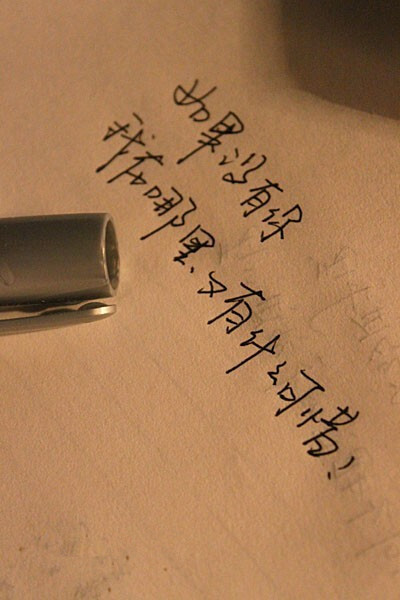 如果没有你
我在哪里又有什么可惜!